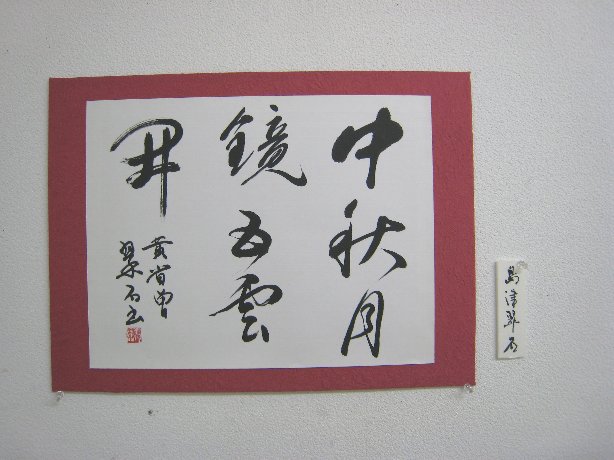 中秋月
鏡五雲
開
黄省曽
翠石書
島津翠石